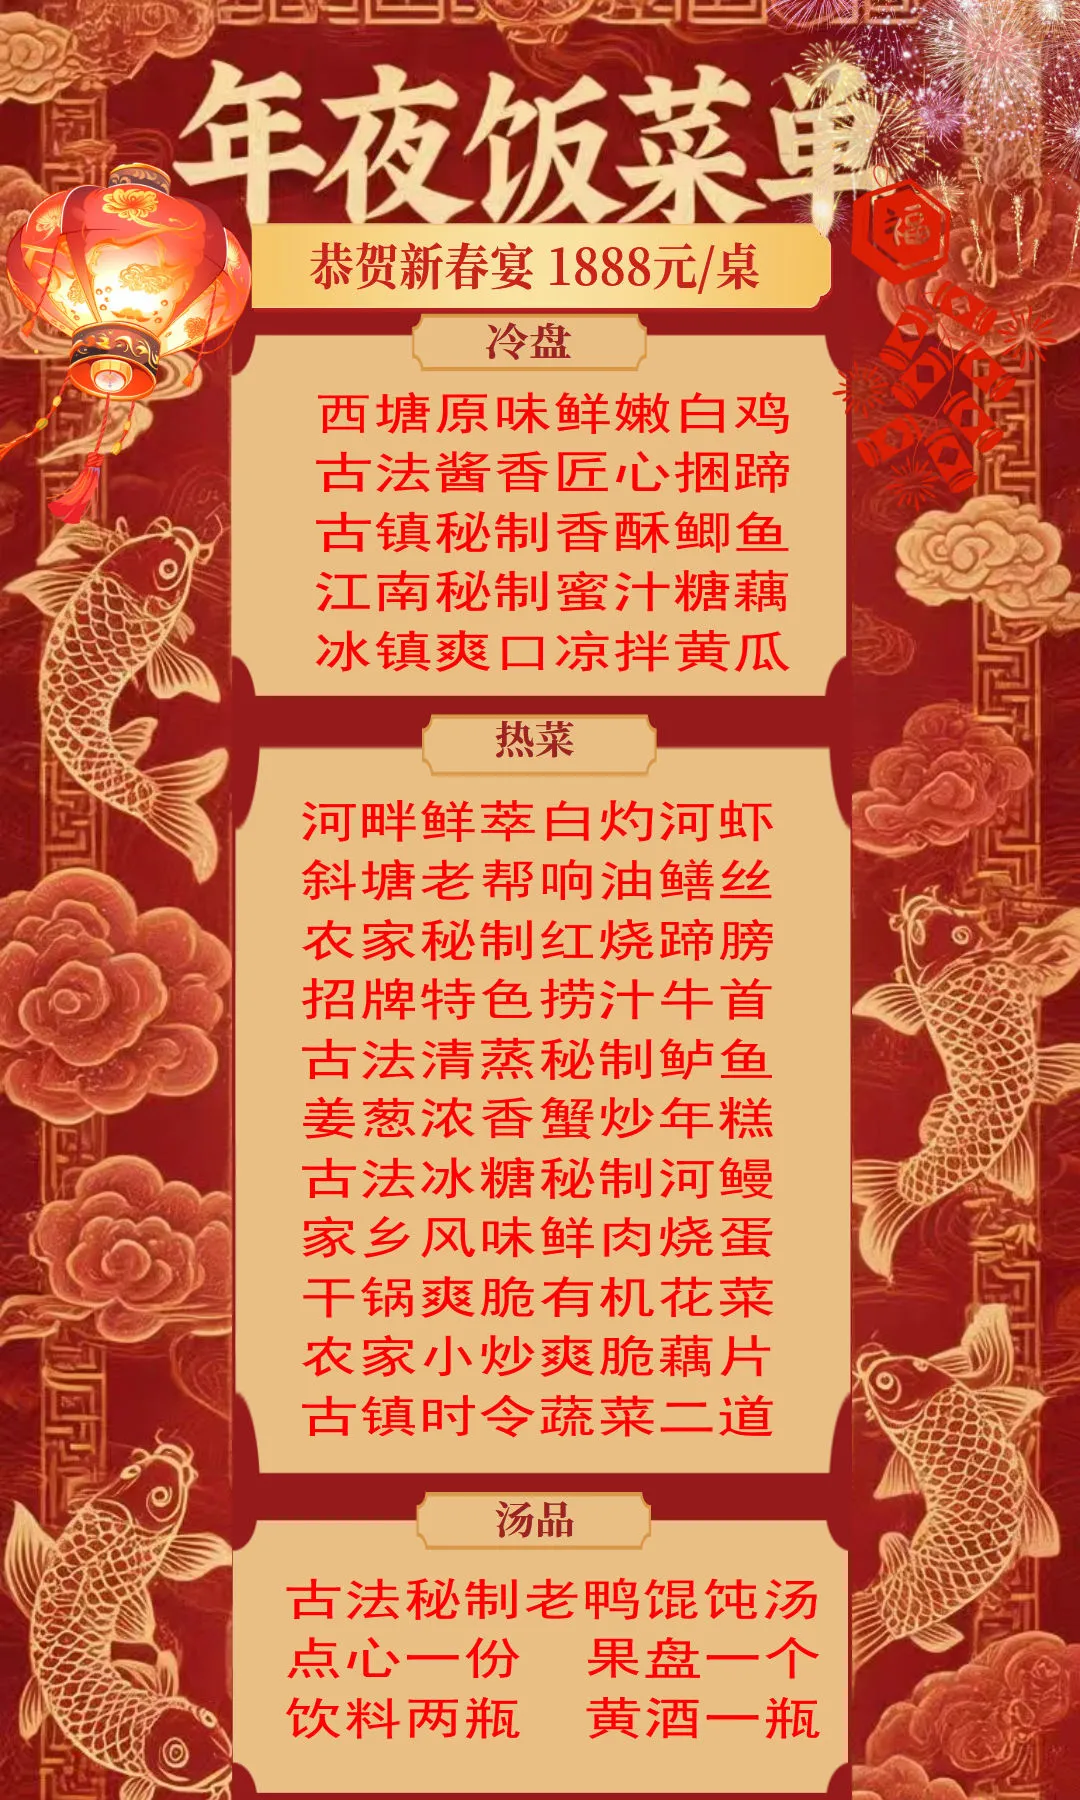 年夜饭菜单
福
恭贺新春宴 1888元/桌
冷盘
西塘原味鲜嫩白鸡
古法酱香匠心捆蹄
古镇秘制香酥鲫鱼
江南秘制蜜汁糖藕
冰镇爽口凉拌黄瓜
热菜
河畔鲜萃白灼河虾
斜塘老帮响油鳝丝
农家秘制红烧蹄膀
招牌特色捞汁牛首
古法清蒸秘制鲈鱼
姜葱浓香蟹炒年糕
古法冰糖秘制河鳗
家乡风味鲜肉烧蛋
干锅爽脆有机花菜
农家小炒爽脆藕片
古镇时令蔬菜二道
汤品
古法秘制老鸭馄饨汤
点心一份 果盘一个
饮料两瓶 黄酒一瓶